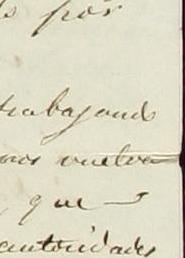 por
trabajando
nos vuelva
que
autoridades